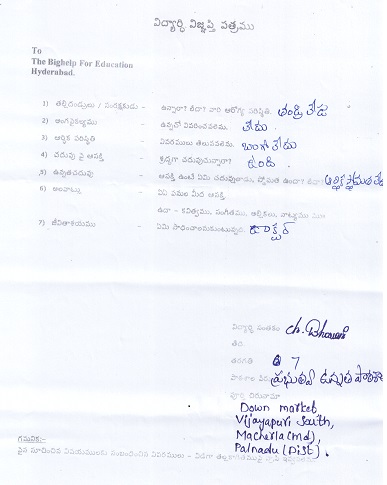 విద్యార్థి విజ్ఞప్తి పత్రము
To
The Bighelp For Education
Hyderabad.
1) తల్లిదండ్రులు / సంరక్షకుడు - ఉన్నారా? లేదా? వారి ఆరోగ్య పరిస్థితి. తండ్రి లేడు
2) అంగవైకల్యము - ఉన్నచో వివరించవలెను. లేదు
3) ఆర్థిక పరిస్థితి - వివరములు తెలుపవలెను. బాగోలేదు
4) చదువు పై ఆసక్తి - శ్రద్ధగా చదువుచున్నారా? ఉంది
5) ఉన్నతచదువు - ఆసక్తి ఉంటే ఏమి చదువుతారు, స్తోమత ఉందా? లేదా? ఆర్థిక స్తోమత లే
6) అలవాట్లు - ఏఏ పనుల మీద ఆసక్తి.
ఉదా - కవిత్వము, సంగీతము, అల్లికలు, నాట్యము
7) జీవితాశయము - ఏమి సాధించాలనుకుంటున్నారు. డాక్టర్
విద్యార్థి సంతకం ch. Bhavani
తేది
తరగతి 7
పాఠశాల పేరు ప్రభుత్వ ఉన్నత పాఠశాల
పూర్తి చిరునామా
Down market
Vijayapuri South,
Macherla (md),
Palnadu (Dist).
గమనిక:-
పైన సూచించిన విషయములకు సంబంధించిన వివరములు -